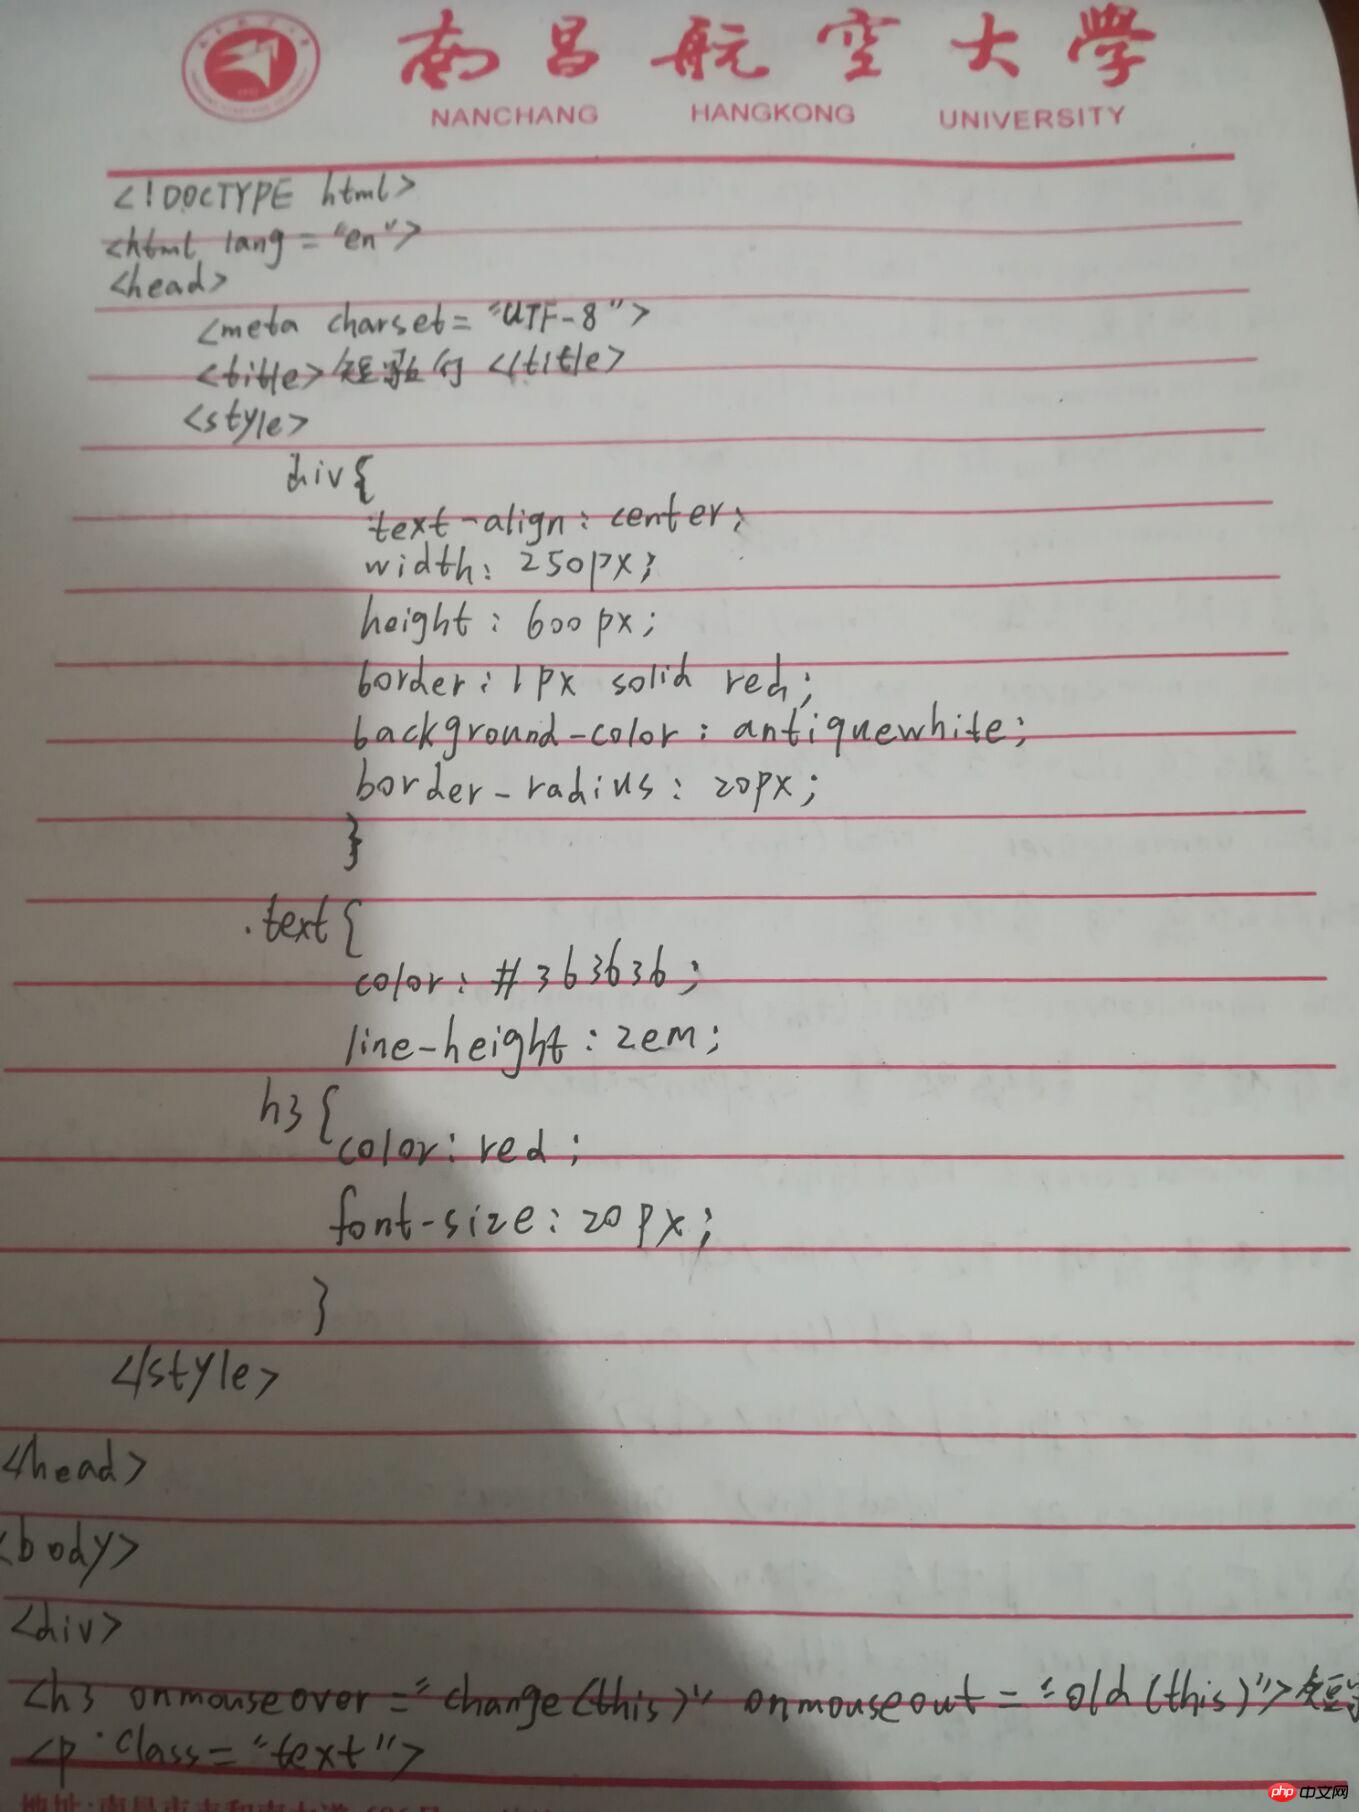 南昌航空大學
NANCHANG HANGKONG UNIVERSITY
<!DOCTYPE html>
<html lang="en">
<head>
<meta charset="UTF-8">
<title>短歌行</title>
<style>
div{
text-align:center;
width:250px;
height:600px;
border:1px solid red;
background-color:antiquewhite;
border-radius:20px;
}
.text{
color:#363636;
line-height:2em;
h3{
color:red;
font-size:20px;
}
</style>
</head>
<body>
<div>
<h3 onmouseover="change(this)" onmouseout="old(this)">短
<p class="text">
php 中文网